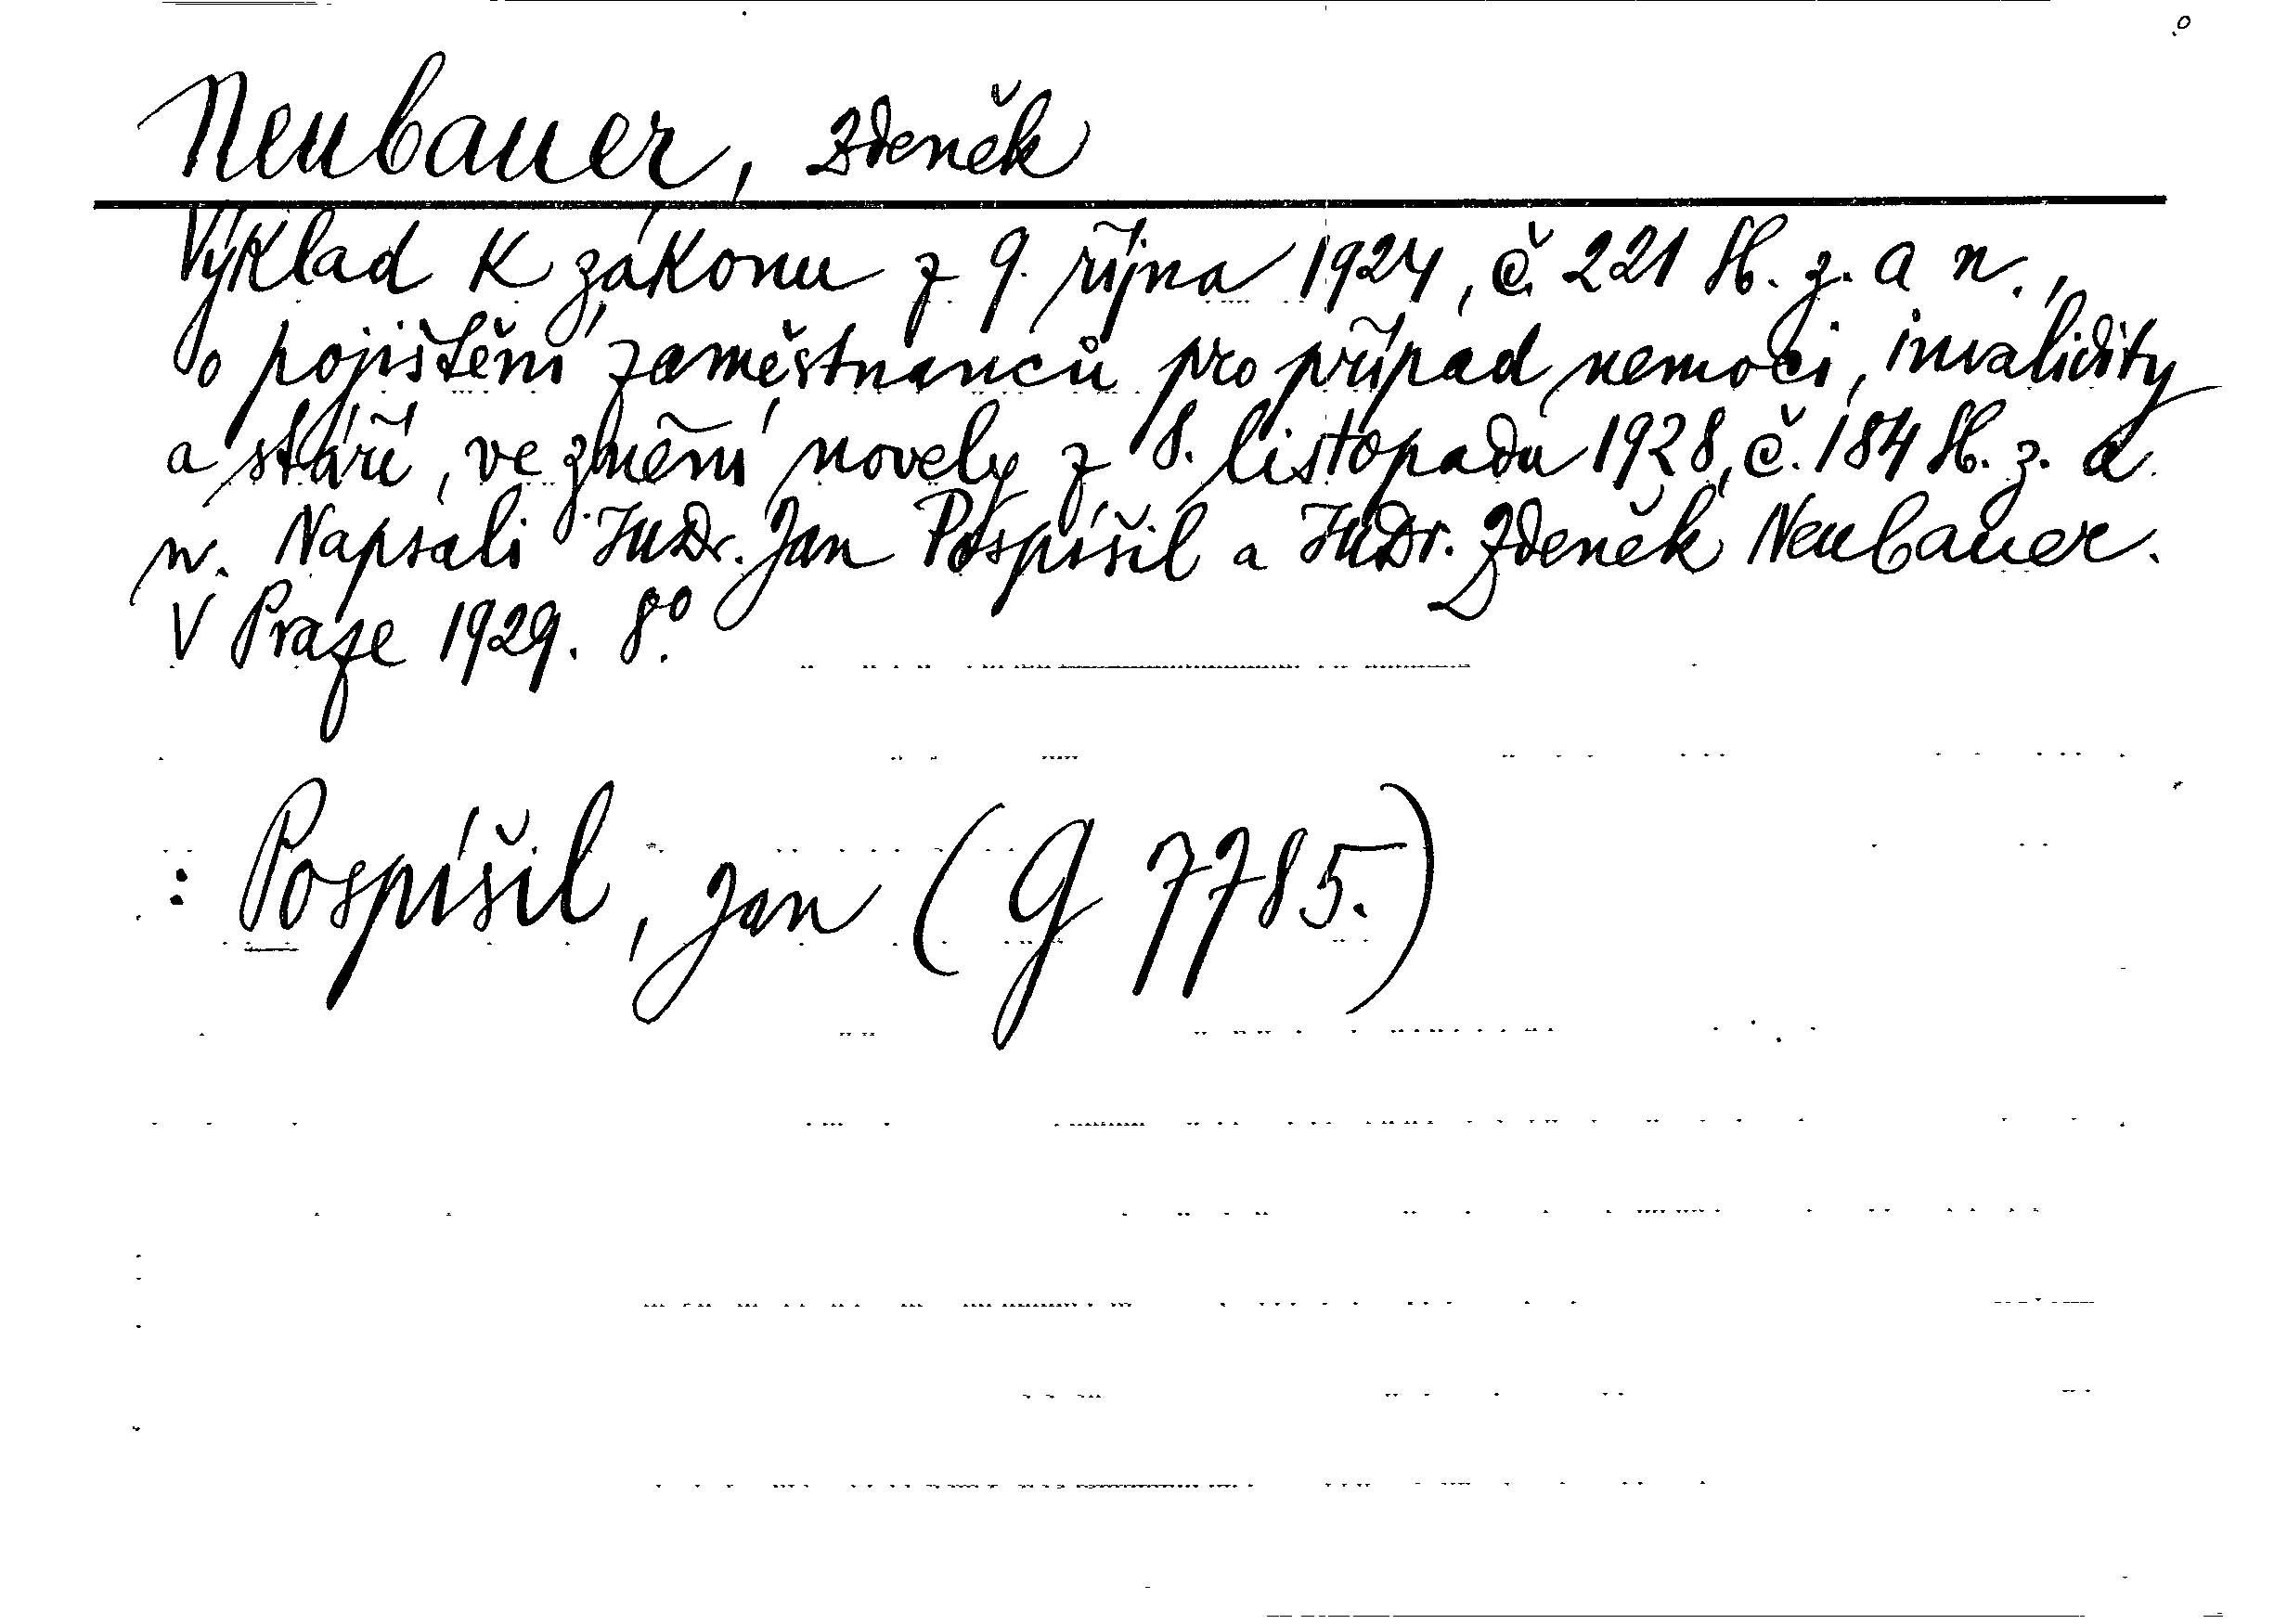 Neubauer, Zdeněk
Výklad k zákonu z 9. října 1924, č. 221 Sb. z. a n.,
o pojištění zaměstnanců pro případ nemoci, invalidity
a stáří, ve znění novely z 8. listopadu 1928, č. 184 Sb. z. a
n. Napsali JUDr. Jan Pospíšil a JUDr. Zdeněk Neubauer.
V Praze 1929. 8°.
: Pospíšil, Jan (G 7785.)